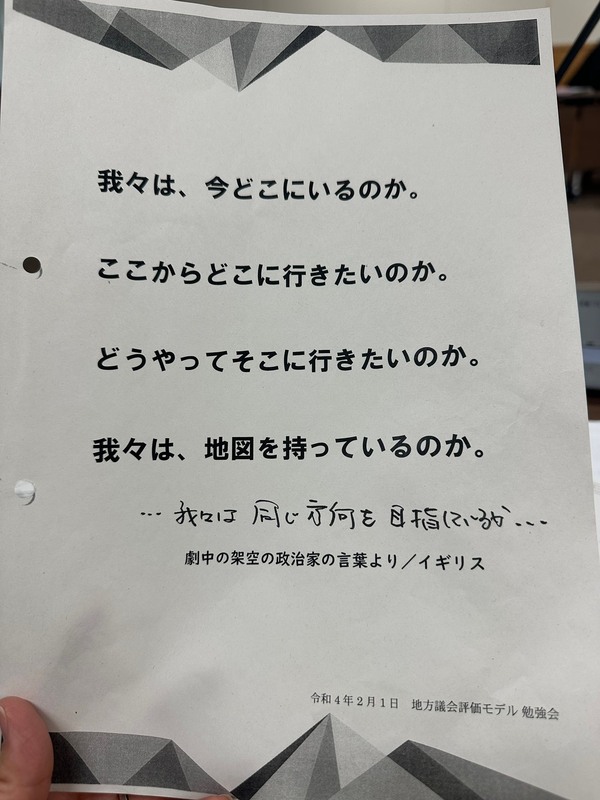 我々は、今どこにいるのか。
ここからどこに行きたいのか。
どうやってそこに行きたいのか。
我々は、地図を持っているのか。
… 我々は 同じ方向を 目指しているか…
劇中の架空の政治家の言葉より／イギリス
令和4年2月1日 地方議会評価モデル 勉強会